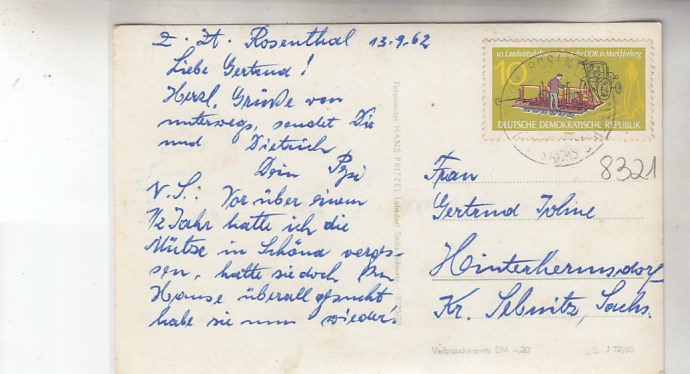 z. Zt. Rosenthal 13.9.62
Liebe Gertrud!
Herzl. Grüße von
unterwegs, sendet Die
und Dietrich
Dein Papi
N.S.: Vor über einem
1/2 Jahr hatte ich die
Mütze in Schöna verges-
sen, hatte sie doch Im
Hause überall gesucht
habe sie nun wieder.
Fotomeister HANS PRITZEL
10. Landwirtschaftsausstellung der DDR in Markkleeberg
10
DEUTSCHE DEMOKRATISCHE REPUBLIK
8321
Frau
Gertrud
Hinterhermsdorf
Kr. Sebnitz, Sachs.
Verbraucherpreis DM -,20
J 72/60